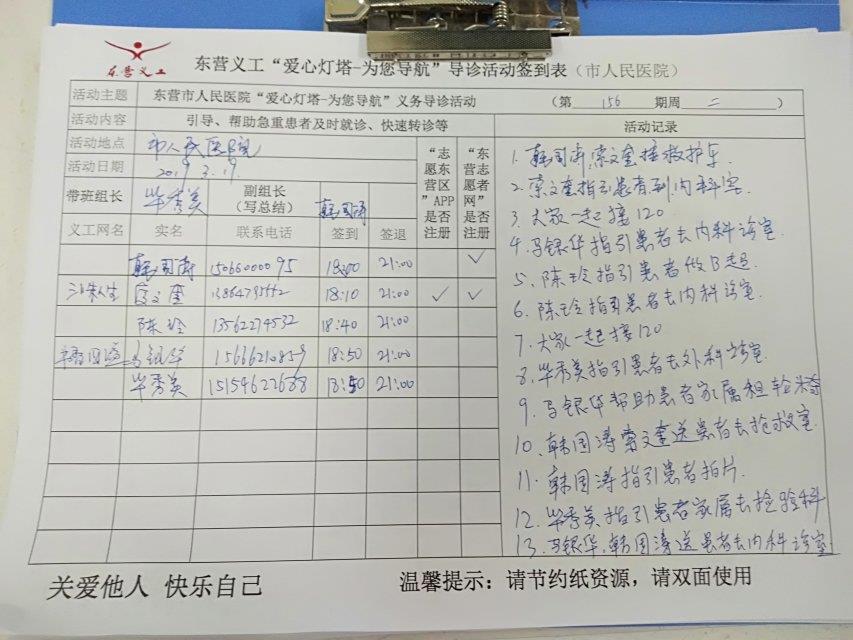 东营义工
东营义工“爱心灯塔-为您导航”导诊活动签到表（市人民医院）
活动主题 东营市人民医院“爱心灯塔-为您导航”义务导诊活动 （第 156 期周 二 ）
活动内容 引导、帮助急重患者及时就诊、快速转诊等
活动地点 市人民医院
活动日期 2019.3.19.
带班组长 毕秀美 副组长（写总结） 韩国涛
“志愿东营区”APP是否注册
“东营志愿者网”是否注册
义工网名 实名 联系电话 签到 签退
韩国涛 15066000095 18:00 21:00 ✓
文奎 18:10 21:00 ✓ ✓
陈玲 13562274532 18:40 21:00
马银华 18:50 21:00
毕秀美 15154622688 18:50 21:00
活动记录
1. 韩国涛,索文奎接救护车.
2. 索文奎指引患者到内科室
3. 大家一起接120
4. 马银华指引患者去内科诊室.
5. 陈玲指引患者做B超.
6. 陈玲指引患者去内科诊室.
7. 大家一起接120
8. 毕秀美指引患者去外科诊室
9. 马银华帮助患者家属租轮椅
10、韩国涛索文奎送患者去抢救室.
11. 韩国涛指引患者拍片.
12. 毕秀美指引患者家属去检验科
13. 马银华,韩国涛送患者去内科诊室
关爱他人 快乐自己
温馨提示：请节约纸资源，请双面使用